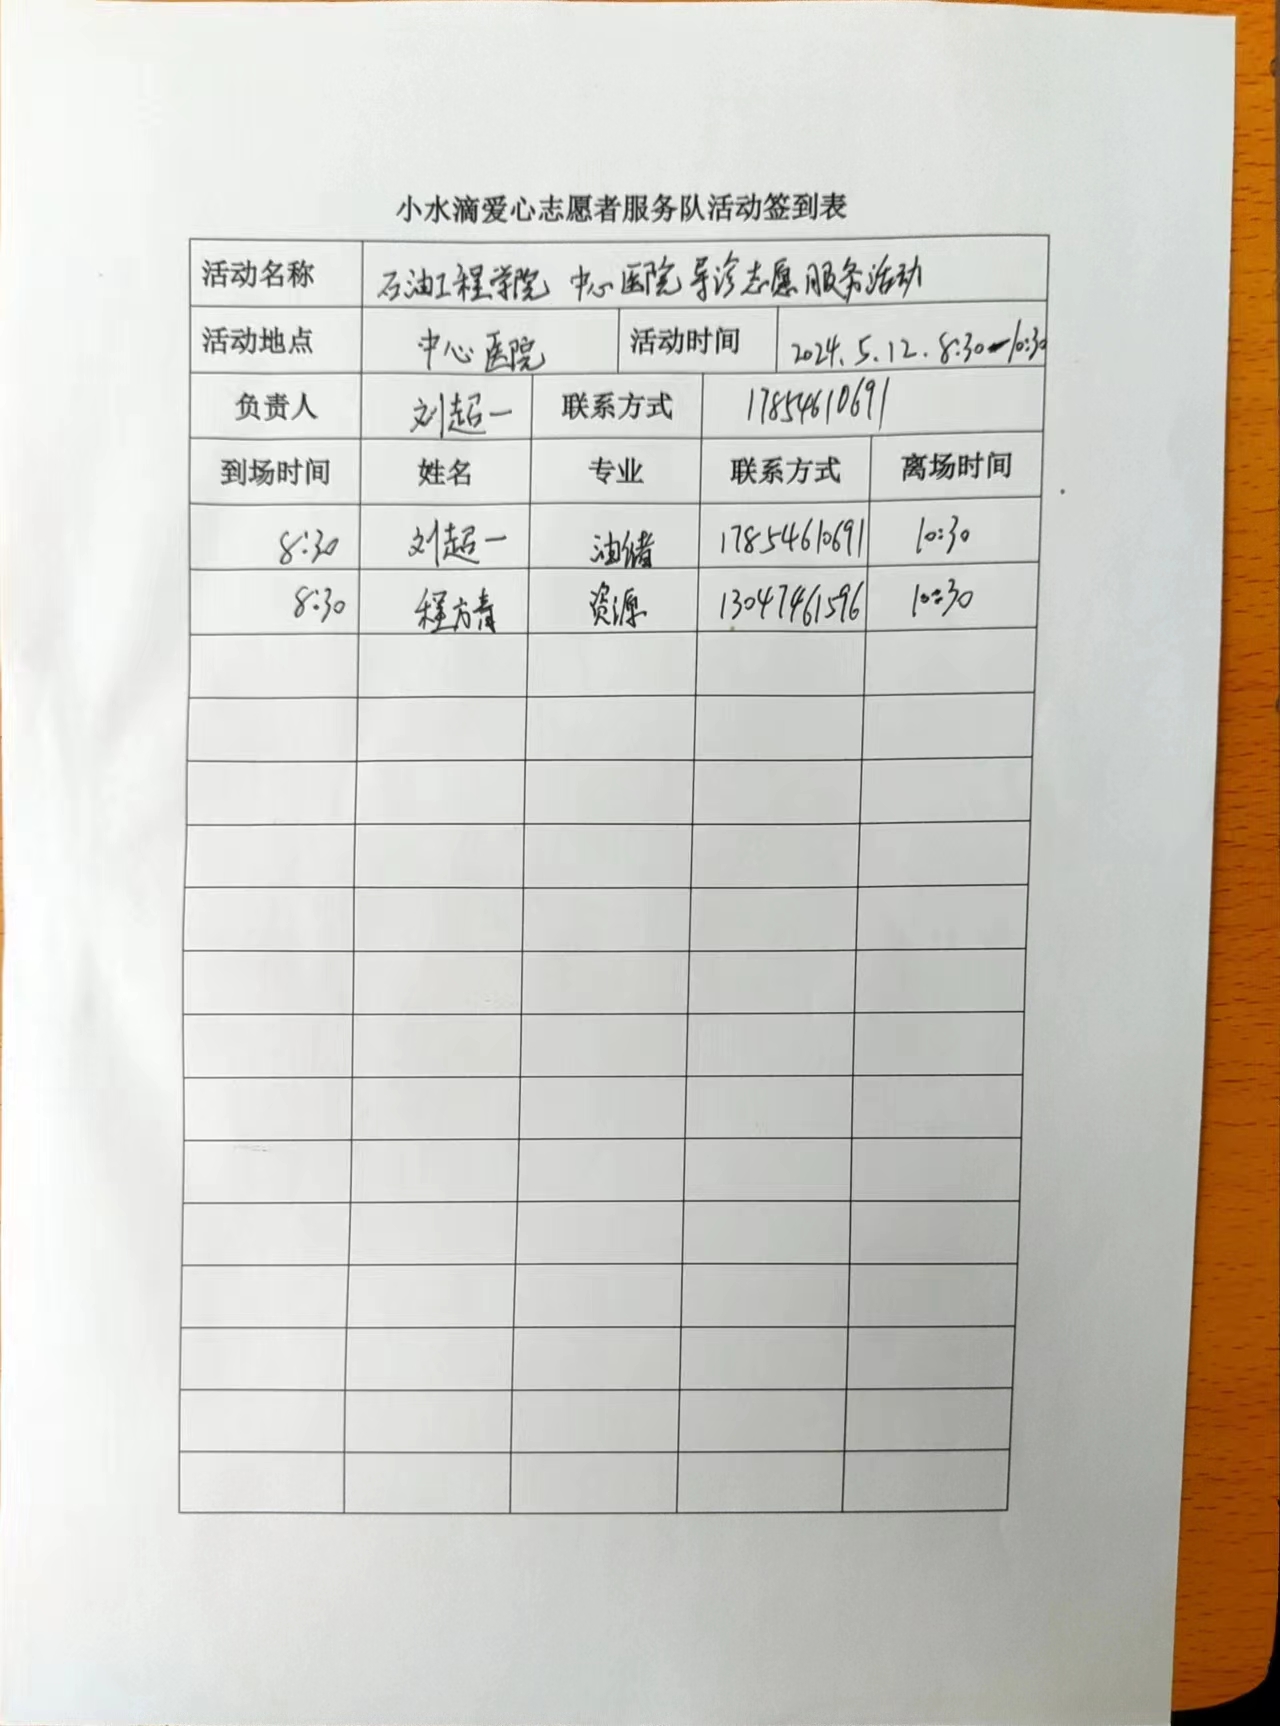 小水滴爱心志愿者服务队活动签到表
活动名称 石油工程学院 中心医院导诊志愿服务活动
活动地点 中心医院 活动时间 2024.5.12.8:30-10:30
负责人 刘超一 联系方式 17854610691
到场时间 姓名 专业 联系方式 离场时间
8:30 刘超一 油储 17854610691 10:30
8:30 程方青 资源 13047461596 10:30